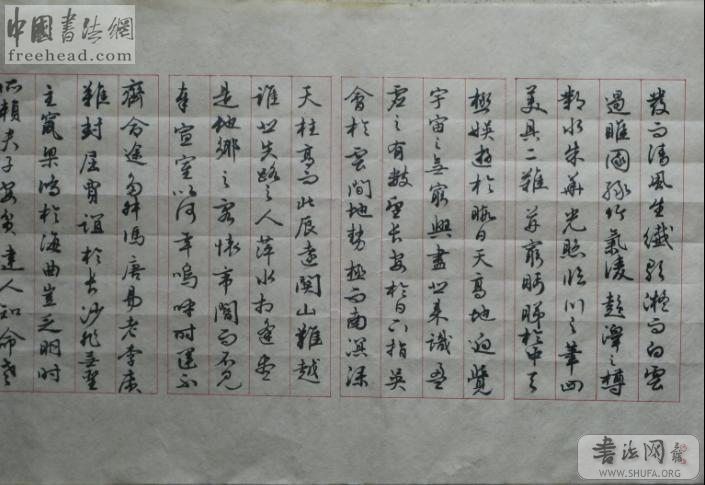 中国書法網
freehead.com
發而清風生纖歌凝而白雲
遏睢園綠竹氣凌彭澤之樽
鄴水朱華光照臨川之筆四
美具二難并窮睇眄於中天
極娛遊於暇日天高地迥覺
宇宙之無窮興盡悲來識盈
虛之有數望長安於日下指吳
會於雲間地勢極而南溟深
天柱高而北辰遠關山難越
誰悲失路之人萍水相逢盡
是他鄉之客懷帝閽而不見
奉宣室以何年嗚呼時運不
齊命途多舛馮唐易老李廣
難封屈賈誼於長沙非無聖
主竄梁鴻於海曲豈乏明時
所賴君子安貧達人知命老
書法网
WWW.SHUFA.ORG